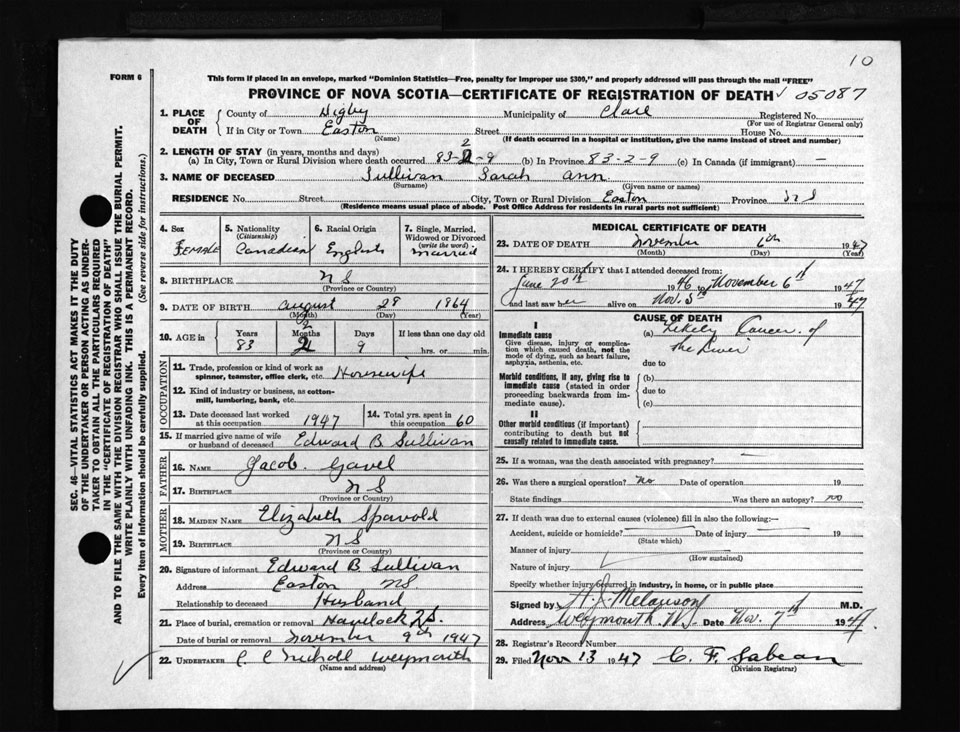 10
FORM 6
This form if placed in an envelope, marked "Dominion Statistics—Free, penalty for improper use $300," and properly addressed will pass through the mail "FREE"
PROVINCE OF NOVA SCOTIA—CERTIFICATE OF REGISTRATION OF DEATH ✓ 05087
1. PLACE OF DEATH County of Digby Municipality of Clare Registered No.
(For use of Registrar General only)
If in City or Town Easton Street House No.
(Name) (If death occurred in a hospital or institution, give the name instead of street and number)
2. LENGTH OF STAY (in years, months and days)
(a) In City, Town or Rural Division where death occurred 83-2-9 (b) In Province 83-2-9 (c) In Canada (if immigrant) —
3. NAME OF DECEASED Sullivan Sarah Ann
(Surname) (Given name or names)
RESIDENCE No. Street City, Town or Rural Division Easton Province NS
(Residence means usual place of abode. Post Office Address for residents in rural parts not sufficient)
4. Sex Female
5. Nationality (Citizenship) Canadian
6. Racial Origin English
7. Single, Married, Widowed or Divorced (write the word) married
8. BIRTHPLACE NS
(Province or Country)
9. DATE OF BIRTH August 28 1864
(Month) (Day) (Year)
10. AGE in Years Months Days If less than one day old
83 2 9 hrs. or min.
OCCUPATION
11. Trade, profession or kind of work as spinner, teamster, office clerk, etc. Housewife
12. Kind of industry or business, as cotton-mill, lumbering, bank, etc.
13. Date deceased last worked at this occupation 1947
14. Total yrs. spent in this occupation 60
15. If married give name of wife or husband of deceased Edward B Sullivan
FATHER
16. NAME Jacob Gavel
17. BIRTHPLACE NS
(Province or Country)
MOTHER
18. MAIDEN NAME Elizabeth Spavold
19. BIRTHPLACE NS
(Province or Country)
20. Signature of informant Edward B. Sullivan
Address Easton NS
Relationship to deceased Husband
21. Place of burial, cremation or removal Havelock NS
Date of burial or removal November 9th 1947
22. UNDERTAKER C. C Nicholl Weymouth
(Name and address)
MEDICAL CERTIFICATE OF DEATH
23. DATE OF DEATH November 6th 1947
(Month) (Day) (Year)
24. I HEREBY CERTIFY that I attended deceased from:
June 20th 1946 to November 6th 1947
and last saw her alive on Nov. 5th 1947
CAUSE OF DEATH
I
Immediate cause
Give disease, injury or complication which caused death, not the mode of dying, such as heart failure, asphyxia, asthenia, etc.
(a) Likely Cancer of
the Liver
due to
Morbid conditions, if any, giving rise to immediate cause (stated in order proceeding backwards from immediate cause).
(b)
due to
(c)
II
Other morbid conditions (if important) contributing to death but not causally related to immediate cause.
25. If a woman, was the death associated with pregnancy? —
26. Was there a surgical operation? no Date of operation 19
State findings Was there an autopsy? no
27. If death was due to external causes (violence) fill in also the following:—
Accident, suicide or homicide? Date of injury 19
(State which)
Manner of injury
(How sustained)
Nature of injury
Specify whether injury occurred in industry, in home, or in public place
Signed by A. J. Melanson M.D.
Address Weymouth. N.S. Date Nov. 7th 1947.
28. Registrar's Record Number
29. Filed Nov 13 1947 C. F. Sabean
(Division Registrar)
SEC. 46—VITAL STATISTICS ACT MAKES IT THE DUTY
OF THE UNDERTAKER OR PERSON ACTING AS UNDER-
TAKER TO OBTAIN ALL THE PARTICULARS REQUIRED
IN THE "CERTIFICATE OF REGISTRATION OF DEATH"
AND TO FILE THE SAME WITH THE DIVISION REGISTRAR WHO SHALL ISSUE THE BURIAL PERMIT.
WRITE PLAINLY WITH UNFADING INK. THIS IS A PERMANENT RECORD.
Every item of information should be carefully supplied. (See reverse side for instructions.)